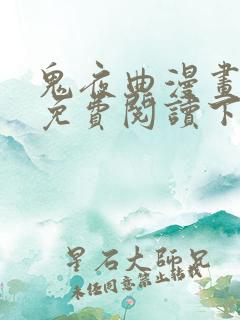 鬼夜曲漫畫
免費閱讀下
星石大師兄
未經同意禁止轉載